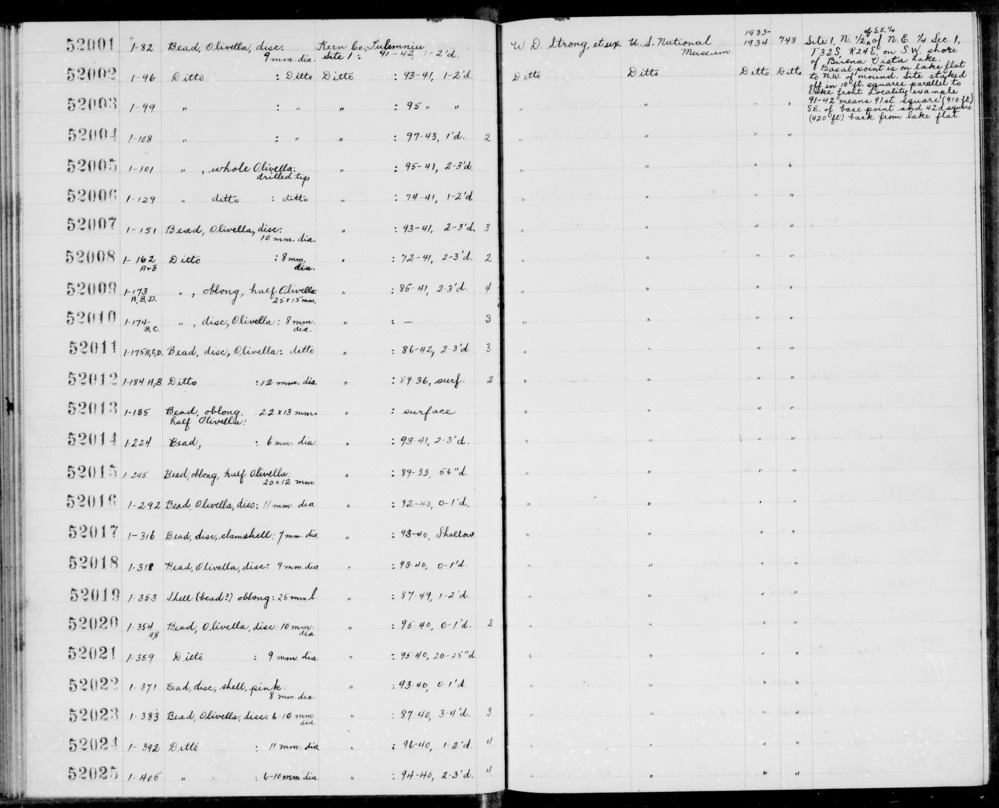 52001 1-82 Bead, Olivella, disc: 9 mm. dia. Kern Co., Tulamniu Site 1: 91-42, 1-2'd. W. D. Strong, et ux. U. S. National Museum 1933-1934 748 Site 1, N. 1/2 of N.E. 1/4 Sec 1,
T32S, R24E, on S.W. shore
of Buena Vista Lake.
52002 1-96 Ditto : Ditto Ditto : 93-41, 1-2'd Ditto Ditto Ditto Ditto Basal point is on lake flat
to N.W. of mound. Site staked
off in 10 ft. squares parallel to
lake front. Locality example
52003 1-99 " : " " : 95 " " " " " " 91-42 means 91st square (910 ft)
SE. of base point and 42d square
(420 ft) back from lake flat.
52004 1-108 " : " " : 97-43, 1'd. 2 " " "
52005 1-101 " , whole Olivella: drilled tip " : 95-41, 2-3'd " " "
52006 1-129 " ditto : ditto " : 74-41, 1-2'd " " " "
52007 1-151 Bead, Olivella, disc: 10 mm. dia. " : 93-41, 2-3'd. 3 " " " "
52008 1-162 A+B Ditto : 8 mm. dia. " : 72-41, 2-3'd. 2 " " " "
52009 1-173 A, B, D. " , oblong, half Olivella 25 x 15 mm. " : 85-41, 2-3'd. 4 " " " "
52010 1-174- B, C " , disc, Olivella : 8 mm. dia. " : — 3 " " " "
52011 1-175 A, C, D. Bead, disc, Olivella: ditto " : 86-42, 2-3'd 3 " " " "
52012 1-184 A, B Ditto : 12 mm. dia " : 89-36, surf. 2 " " " "
52013 1-185 Bead, oblong. 22 x 13 mm. half Olivella: " : surface " " " "
52014 1-224 Bead, : 6 mm. dia " : 93-41, 2-3'd. " " " "
52015 1-245 Bead, oblong, half Olivella: 20 x 12 mm " : 89-33, 56"d. " " " "
52016 1-292 Bead, Olivella, disc: 11 mm. dia " : 92-40, 0-1'd. " " " "
52017 1-316 Bead, disc, clamshell: 7 mm. dia " : 93-40, Shallow " " " "
52018 1-318 Bead, Olivella, disc: 9 mm. dia " : 93-40, 0-1'd. " " " "
52019 1-353 Shell (bead?) oblong: 25 mm l " : 87-49, 1-2'd. " " " "
52020 1-354 A, B Bead, Olivella, disc: 10 mm. dia " : 95-40, 0-1'd. 2 " " " "
52021 1-359 Ditto : 9 mm. dia " : 95-40, 20-25"d " " " "
52022 1-371 Bead, disc, shell, pink: 8 mm. dia " : 93-40, 0-1'd " " " "
52023 1-383 Bead, Olivella, disc: 6-10 mm dia " : 87-40, 3-4'd. 3 " " " "
52024 1-392 Ditto : 11 mm. dia " : 96-40, 1-2'd. " " " "
52025 1-405 " : 6-10 mm. dia " : 94-40, 2-3'd. " " " "